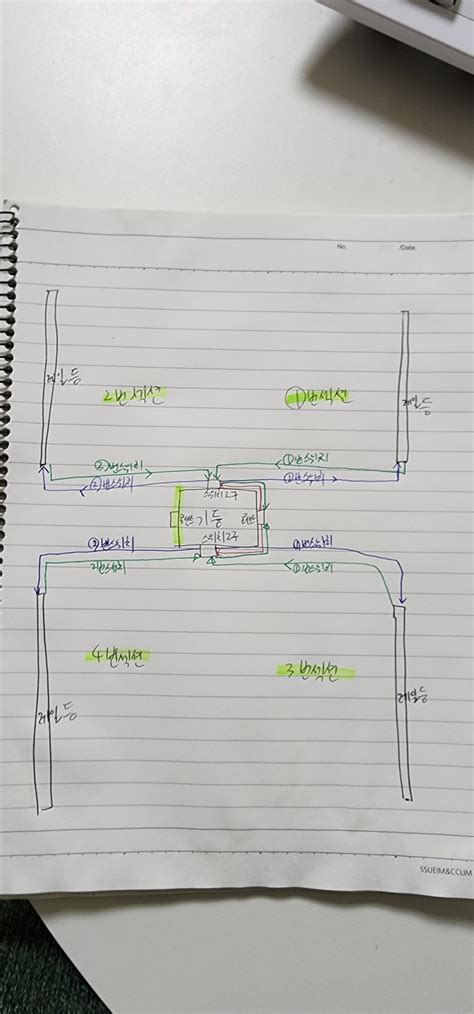 No.
/Date
레일등
2번섹션
①번섹션
레일등
②번스위치
①번스위치
②번스위치
①번스위치
스위치2구
콘센트
기둥
콘센트
스위치2구
②번스위치
①번스위치
2번스위치
①번스위치
4번섹션
3번섹션
레일등
레일등
SSUEIM&CCLIM